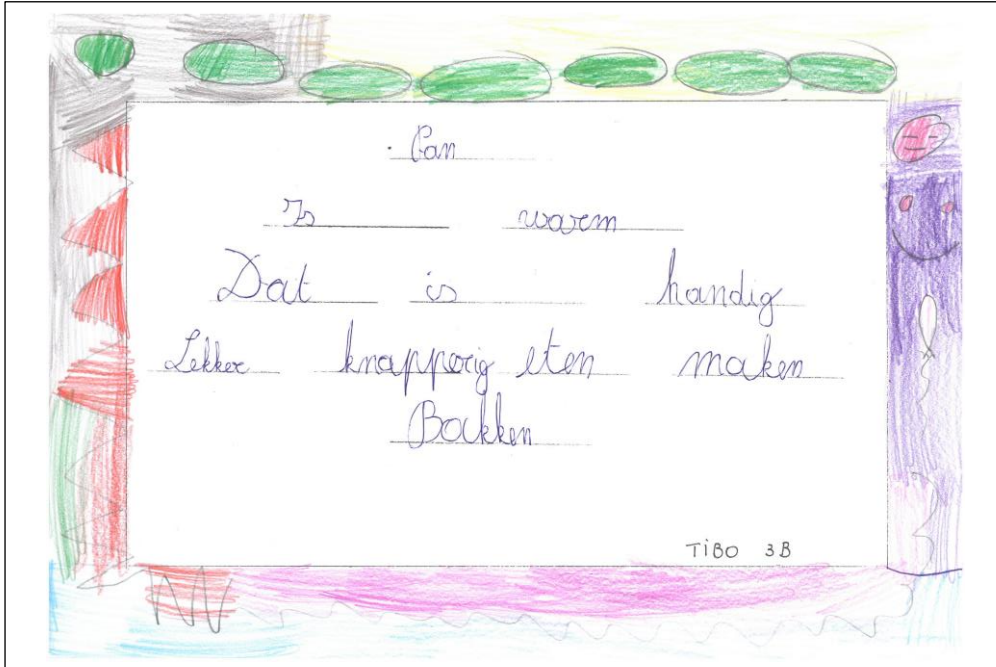 Pan
Is warm
Dat is handig
Lekker knapperig eten maken
Bakken
TiBO 3B